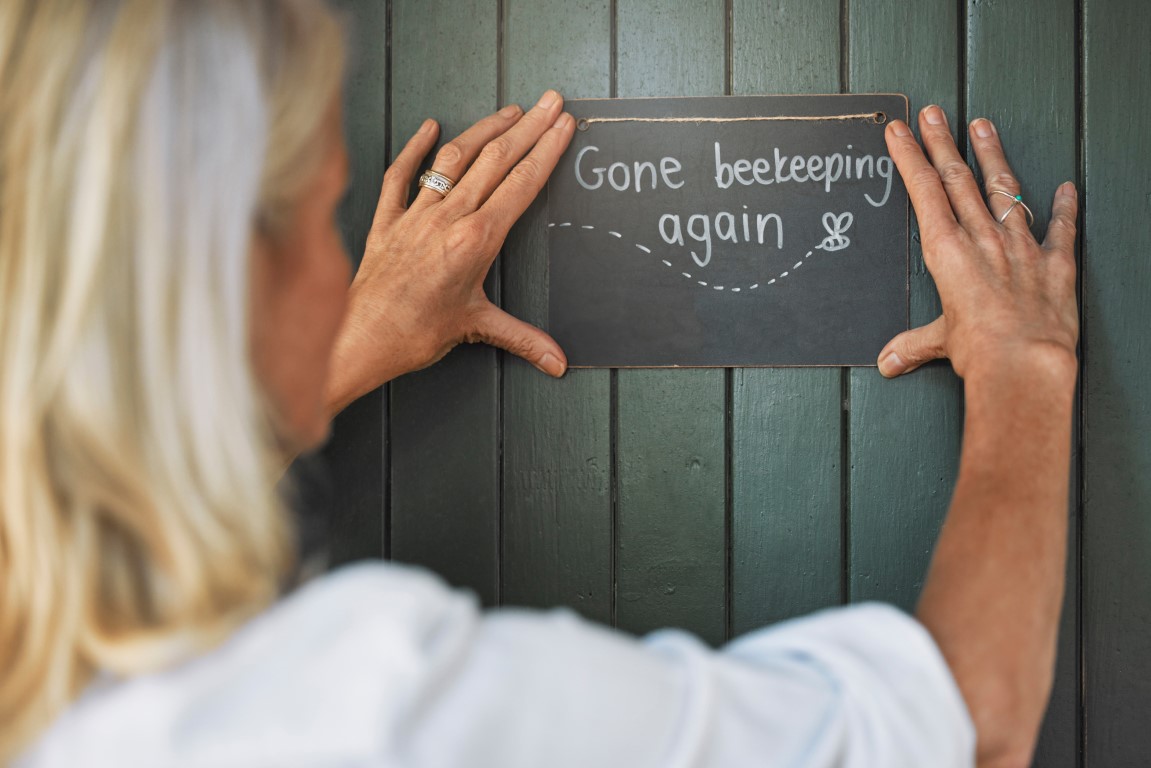 Gone beekeeping
again